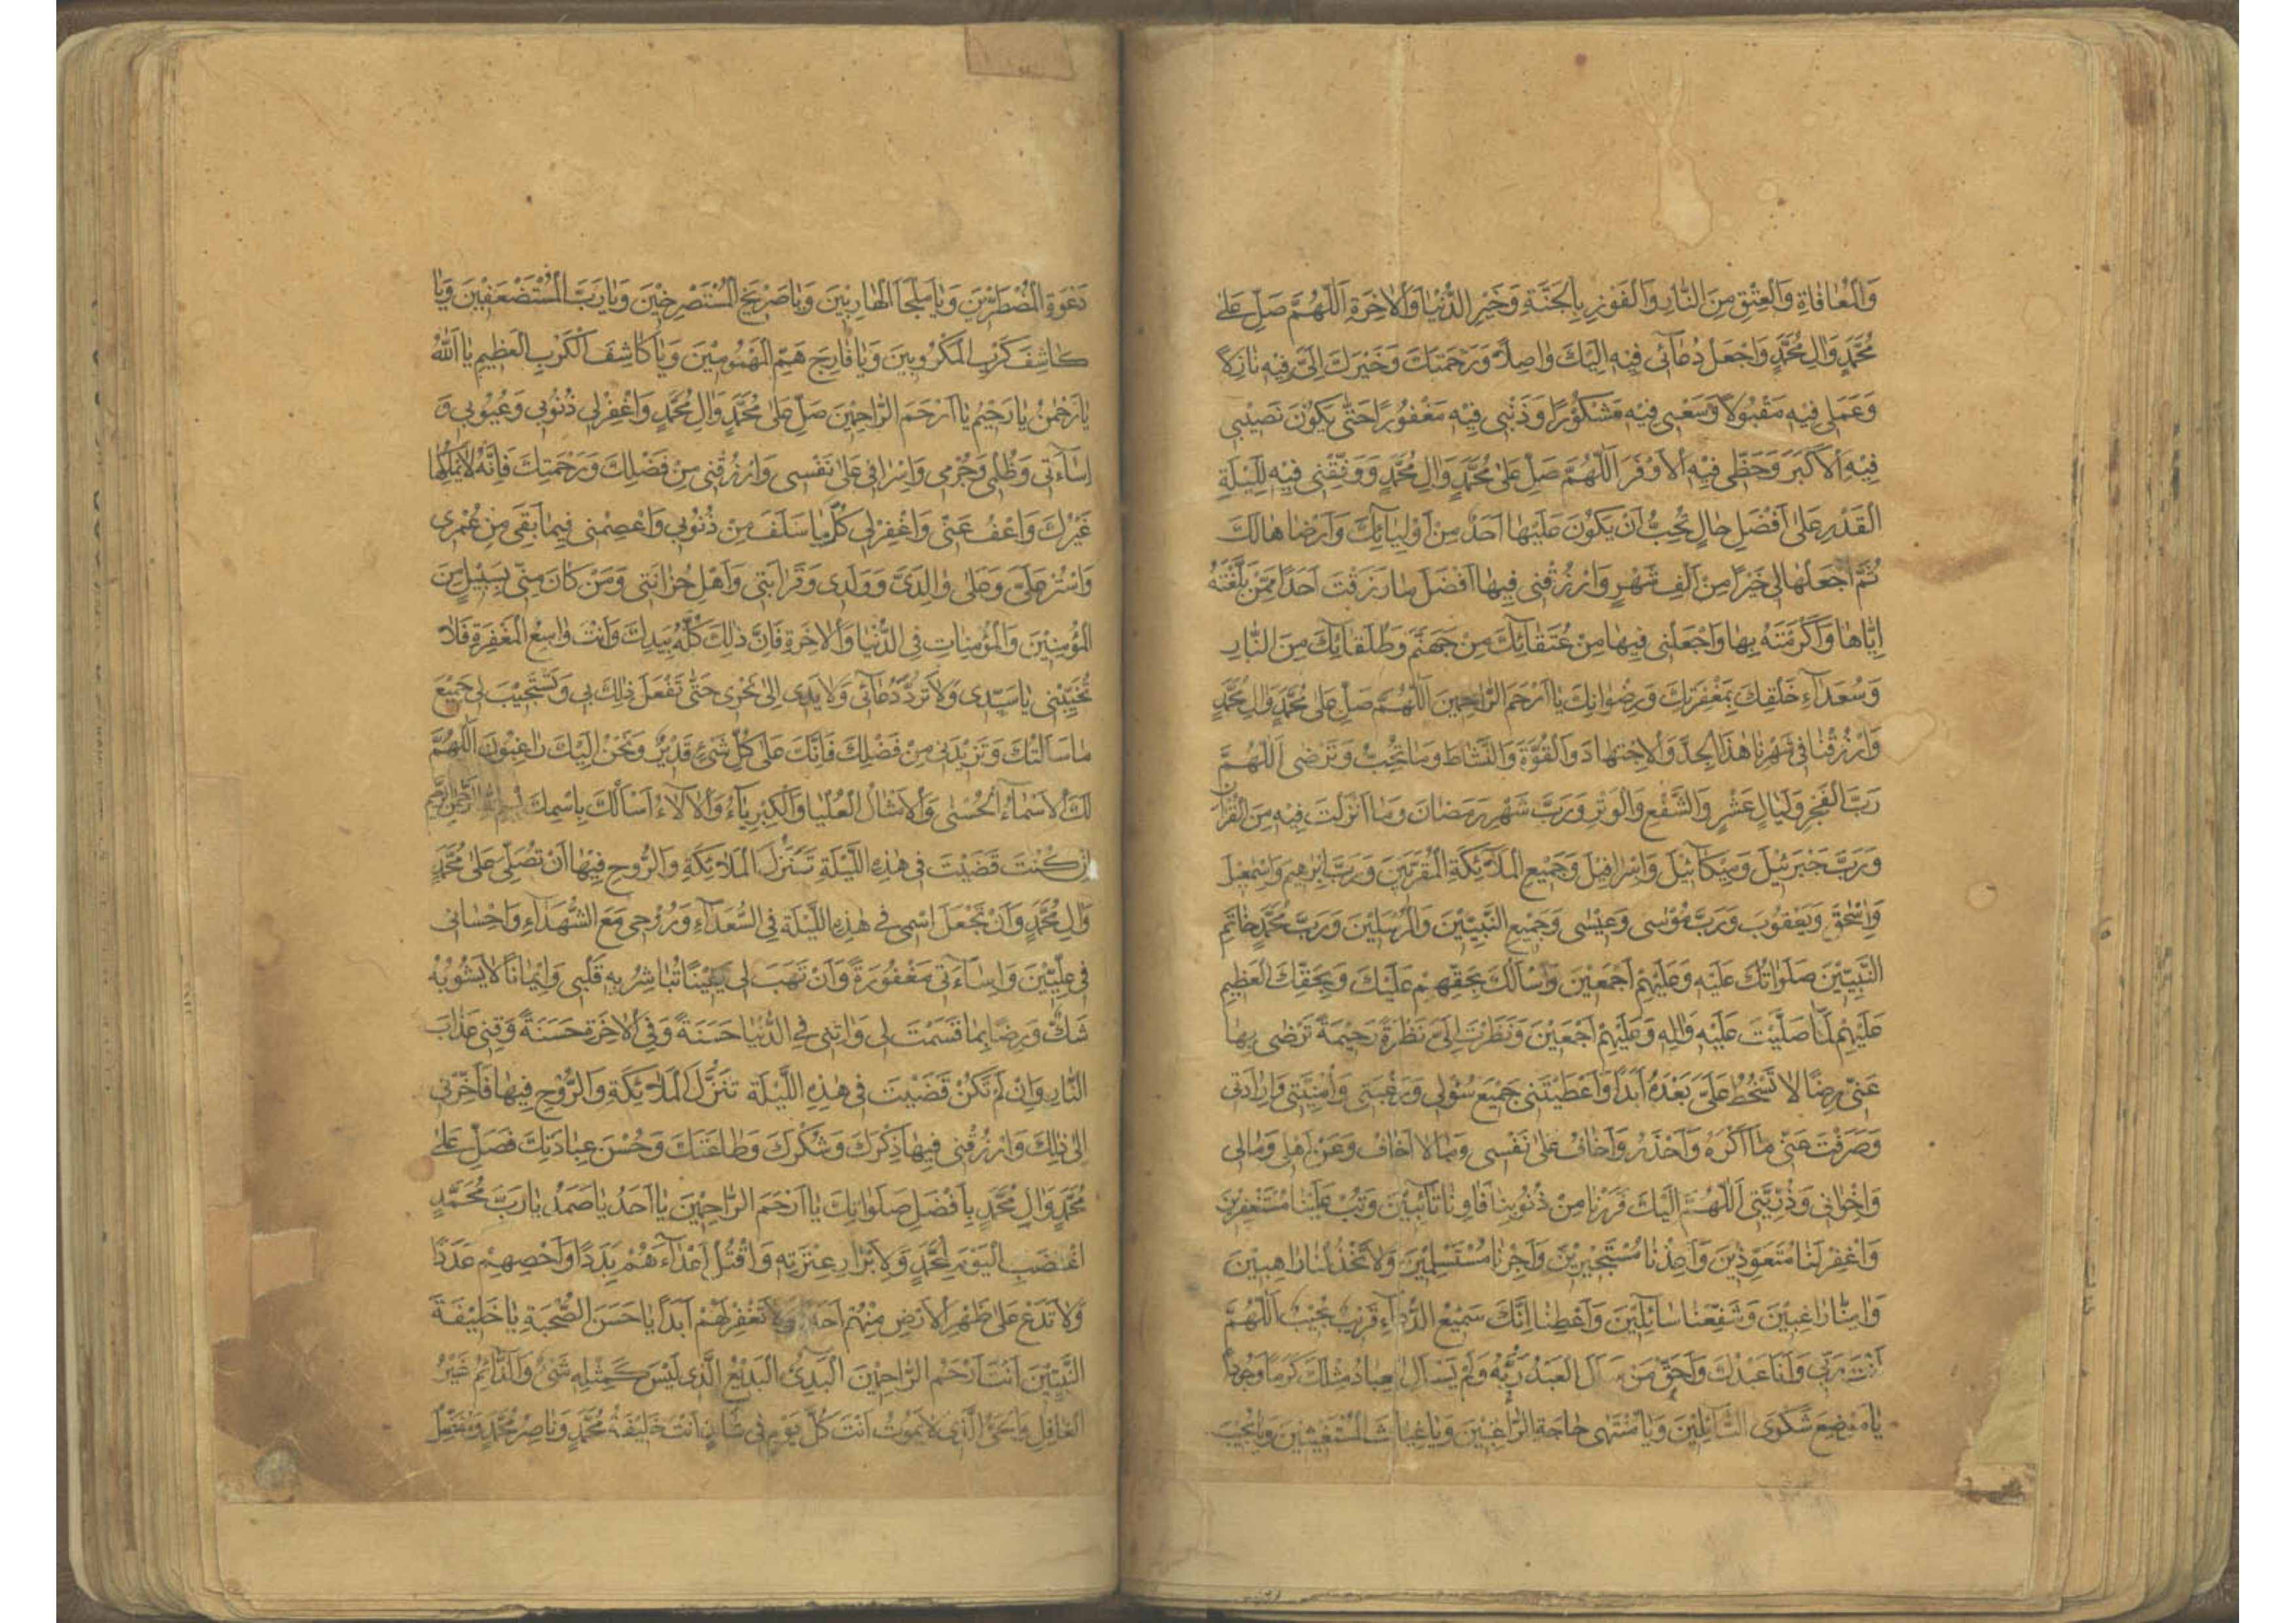 وَالْمُعَافَاةِ وَالْعِتْقِ مِنَ النَّارِ وَالْفَوْزِ بِالْجَنَّةِ وَخَيْرِ الدُّنْيَا وَالْاٰخِرَةِ اَللّٰهُمَّ صَلِّ عَلٰى
مُحَمَّدٍ وَاٰلِ مُحَمَّدٍ وَاجْعَلْ دُعَائِى فِيهِ اِلَيْكَ وَاصِلًا وَرَحْمَتَكَ وَخَيْرَكَ اِلَىَّ فِيهِ نَازِلًا
وَعَمَلِى فِيْهِ مَقْبُولًا وَسَعْيِى فِيْهِ مَشْكُوْرًا وَذَنْبِى فِيْهِ مَغْفُورًا حَتّٰى يَكُوْنَ نَصِيْبِى
فِيْهِ الْاَكْبَرَ وَحَظِّى فِيْهِ الْاَوْفَرَ اَللّٰهُمَّ صَلِّ عَلٰى مُحَمَّدٍ وَاٰلِ مُحَمَّدٍ وَوَفِّقْنِى فِيْهِ لِلَيْلَةِ
الْقَدْرِ عَلٰى اَفْضَلِ حَالٍ تُحِبُّ اَنْ يَكُوْنَ عَلَيْهَا اَحَدٌ مِنْ اَوْلِيَائِكَ وَاَرْضَاهَا لَكَ
ثُمَّ اجْعَلْهَا لِى خَيْرًا مِنْ اَلْفِ شَهْرٍ وَارْزُقْنِى فِيهَا اَفْضَلَ مَا رَزَقْتَ اَحَدًا مِمَّنْ بَلَّغْتَهُ
اِيَّاهَا وَاَكْرَمْتَهُ بِهَا وَاجْعَلْنِى فِيهَا مِنْ عُتَقَائِكَ مِنْ جَهَنَّمَ وَطُلَقَائِكَ مِنَ النَّارِ
وَسُعَدَاءِ خَلْقِكَ بِمَغْفِرَتِكَ وَرِضْوَانِكَ يَا اَرْحَمَ الرَّاحِمِينَ اَللّٰهُمَّ صَلِّ عَلٰى مُحَمَّدٍ وَاٰلِ مُحَمَّدٍ
وَارْزُقْنَا فِى شَهْرِنَا هٰذَا الْجِدَّ وَالْاِجْتِهَادَ وَالْقُوَّةَ وَالنَّشَاطَ وَمَا تُحِبُّ وَتَرْضٰى اَللّٰهُمَّ
رَبَّ الْفَجْرِ وَلَيَالٍ عَشْرٍ وَالشَّفْعِ وَالْوَتْرِ وَرَبَّ شَهْرِ رَمَضَانَ وَمَا اَنْزَلْتَ فِيْهِ مِنَ الْقُرْاٰنِ
وَرَبَّ جَبْرَئِيْلَ وَمِيْكَائِيْلَ وَاِسْرَافِيْلَ وَجَمِيْعِ الْمَلَائِكَةِ الْمُقَرَّبِيْنَ وَرَبَّ اِبْرٰهِيْمَ وَاِسْمٰعِيْلَ
وَاِسْحٰقَ وَيَعْقُوْبَ وَرَبَّ مُوْسٰى وَعِيْسٰى وَجَمِيْعِ النَّبِيِّيْنَ وَالْمُرْسَلِيْنَ وَرَبَّ مُحَمَّدٍ خَاتَمِ
النَّبِيِّيْنَ صَلَوَاتُكَ عَلَيْهِ وَعَلَيْهِمْ اَجْمَعِيْنَ وَاَسْاَلُكَ بِحَقِّهِمْ عَلَيْكَ وَبِحَقِّكَ الْعَظِيْمِ
عَلَيْهِمْ لَمَّا صَلَّيْتَ عَلَيْهِ وَاٰلِهِ وَعَلَيْهِمْ اَجْمَعِيْنَ وَنَظَرْتَ اِلَىَّ نَظْرَةً رَحِيْمَةً تَرْضٰى بِهَا
عَنِّى رِضًا لَا تَسْخَطُ عَلَىَّ بَعْدَهُ اَبَدًا وَاَعْطَيْتَنِى جَمِيْعَ سُؤْلِى وَرَغْبَتِى وَاُمْنِيَّتِى وَاِرَادَتِى
وَصَرَفْتَ عَنِّى مَا اَكْرَهُ وَاَحْذَرُ وَاَخَافُ عَلٰى نَفْسِى وَمَا لَا اَخَافُ وَعَنْ اَهْلِى وَمَالِى
وَاِخْوَانِى وَذُرِّيَّتِى اَللّٰهُمَّ اِلَيْكَ فَرَرْنَا مِنْ ذُنُوْبِنَا فَاٰوِنَا تَائِبِيْنَ وَتُبْ عَلَيْنَا مُسْتَغْفِرِيْنَ
وَاغْفِرْ لَنَا مُتَعَوِّذِيْنَ وَاَعِذْنَا مُسْتَجِيْرِيْنَ وَاَجِرْنَا مُسْتَسْلِمِيْنَ وَلَا تَخْذُلْنَا رَاهِبِيْنَ
وَاٰمِنَّا رَاغِبِيْنَ وَشَفِّعْنَا سَائِلِيْنَ وَاَعْطِنَا اِنَّكَ سَمِيْعُ الدُّعَاءِ قَرِيْبٌ مُجِيْبٌ اَللّٰهُمَّ
اَنْتَ رَبِّى وَاَنَا عَبْدُكَ وَاَحَقُّ مَنْ سَاَلَ الْعَبْدُ رَبَّهُ وَلَمْ يَسْاَلِ الْعِبَادُ مِثْلَكَ كَرَمًا وَجُوْدًا
يَا مَوْضِعَ شَكْوَى السَّائِلِيْنَ وَيَا مُنْتَهٰى حَاجَةِ الرَّاغِبِيْنَ وَيَا غِيَاثَ الْمُسْتَغِيْثِيْنَ وَيَا مُجِيْبَ
دَعْوَةِ الْمُضْطَرِّيْنَ وَيَا مَلْجَاَ الْهَارِبِيْنَ وَيَا صَرِيْخَ الْمُسْتَصْرِخِيْنَ وَيَا رَبَّ الْمُسْتَضْعَفِيْنَ وَيَا
كَاشِفَ كَرْبِ الْمَكْرُوبِينَ وَيَا فَارِجَ هَمِّ الْمَهْمُوْمِيْنَ وَيَا كَاشِفَ الْكَرْبِ الْعَظِيمِ يَا اَللّٰهُ
يَا رَحْمٰنُ يَا رَحِيْمُ يَا اَرْحَمَ الرَّاحِمِيْنَ صَلِّ عَلٰى مُحَمَّدٍ وَاٰلِ مُحَمَّدٍ وَاغْفِرْ لِى ذُنُوْبِى وَعُيُوْبِى وَ
اِسَاءَتِى وَظُلْمِى وَجُرْمِى وَاِسْرَافِى عَلٰى نَفْسِى وَارْزُقْنِى مِنْ فَضْلِكَ وَرَحْمَتِكَ فَاِنَّهُ لَا يَمْلِكُهَا
غَيْرُكَ وَاعْفُ عَنِّى وَاغْفِرْ لِى كُلَّ مَا سَلَفَ مِنْ ذُنُوْبِى وَاعْصِمْنِى فِيمَا بَقِىَ مِنْ عُمْرِى
وَاسْتُرْ عَلَىَّ وَعَلٰى وَالِدَىَّ وَوَلَدِى وَقَرَابَتِى وَاَهْلِ حُزَانَتِى وَمَنْ كَانَ مِنِّى بِسَبِيْلٍ مِنَ
الْمُؤْمِنِيْنَ وَالْمُؤْمِنَاتِ فِى الدُّنْيَا وَالْاٰخِرَةِ فَاِنَّ ذٰلِكَ كُلَّهُ بِيَدِكَ وَاَنْتَ وَاسِعُ الْمَغْفِرَةِ فَلَا
تُخَيِّبْنِى يَا سَيِّدِى وَلَا تَرُدَّ دُعَائِى وَلَا يَدِى اِلٰى نَحْرِى حَتّٰى تَفْعَلَ ذٰلِكَ بِى وَتَسْتَجِيْبَ لِى جَمِيْعَ
مَا سَاَلْتُكَ وَتَزِيْدَنِى مِنْ فَضْلِكَ فَاِنَّكَ عَلٰى كُلِّ شَىْءٍ قَدِيْرٌ وَنَحْنُ اِلَيْكَ رَاغِبُوْنَ اَللّٰهُمَّ
لَكَ الْاَسْمَاءُ الْحُسْنٰى وَالْاَمْثَالُ الْعُلْيَا وَالْكِبْرِيَاءُ وَالْاٰلَاءُ اَسْاَلُكَ بِاسْمِكَ بِسْمِ اللّٰهِ الرَّحْمٰنِ الرَّحِيْمِ
اِنْ كُنْتَ قَضَيْتَ فِى هٰذِهِ اللَّيْلَةِ تَنَزُّلَ الْمَلَائِكَةِ وَالرُّوحِ فِيْهَا اَنْ تُصَلِّىَ عَلٰى مُحَمَّدٍ
وَاٰلِ مُحَمَّدٍ وَاَنْ تَجْعَلَ اسْمِى فِى هٰذِهِ اللَّيْلَةِ فِى السُّعَدَاءِ وَرُوْحِى مَعَ الشُّهَدَاءِ وَاِحْسَانِى
فِى عِلِّيِّيْنَ وَاِسَاءَتِى مَغْفُوْرَةً وَاَنْ تَهَبَ لِى يَقِيْنًا تُبَاشِرُ بِهِ قَلْبِى وَاِيْمَانًا لَا يَشُوْبُهُ
شَكٌّ وَرِضًا بِمَا قَسَمْتَ لِى وَاٰتِنِى فِى الدُّنْيَا حَسَنَةً وَفِى الْاٰخِرَةِ حَسَنَةً وَقِنِى عَذَابَ
النَّارِ وَاِنْ لَمْ تَكُنْ قَضَيْتَ فِى هٰذِهِ اللَّيْلَةِ تَنَزُّلَ الْمَلَائِكَةِ وَالرُّوْحِ فِيْهَا فَاَخِّرْنِى
اِلٰى ذٰلِكَ وَارْزُقْنِى فِيْهَا ذِكْرَكَ وَشُكْرَكَ وَطَاعَتَكَ وَحُسْنَ عِبَادَتِكَ فَصَلِّ عَلٰى
مُحَمَّدٍ وَاٰلِ مُحَمَّدٍ بِاَفْضَلِ صَلَوَاتِكَ يَا اَرْحَمَ الرَّاحِمِيْنَ يَا اَحَدُ يَا صَمَدُ يَا رَبَّ مُحَمَّدٍ
اغْضَبِ الْيَوْمَ لِمُحَمَّدٍ وَلِاَبْرَارِ عِتْرَتِهِ وَاقْتُلْ اَعْدَاءَهُمْ بَدَدًا وَاَحْصِهِمْ عَدَدًا
وَلَا تَدَعْ عَلٰى ظَهْرِ الْاَرْضِ مِنْهُمْ اَحَدًا وَلَا تَغْفِرْ لَهُمْ اَبَدًا يَا حَسَنَ الصُّحْبَةِ يَا خَلِيْفَةَ
النَّبِيِّيْنَ اَنْتَ اَرْحَمُ الرَّاحِمِيْنَ الْبَدِىْءُ الْبَدِيْعُ الَّذِى لَيْسَ كَمِثْلِهِ شَىْءٌ وَالدَّائِمُ غَيْرُ
الْغَافِلِ وَالْحَىُّ الَّذِى لَا يَمُوْتُ اَنْتَ كُلَّ يَوْمٍ فِى شَاْنٍ اَنْتَ خَلِيْفَةُ مُحَمَّدٍ وَنَاصِرُ مُحَمَّدٍ وَمُفَضِّلُ